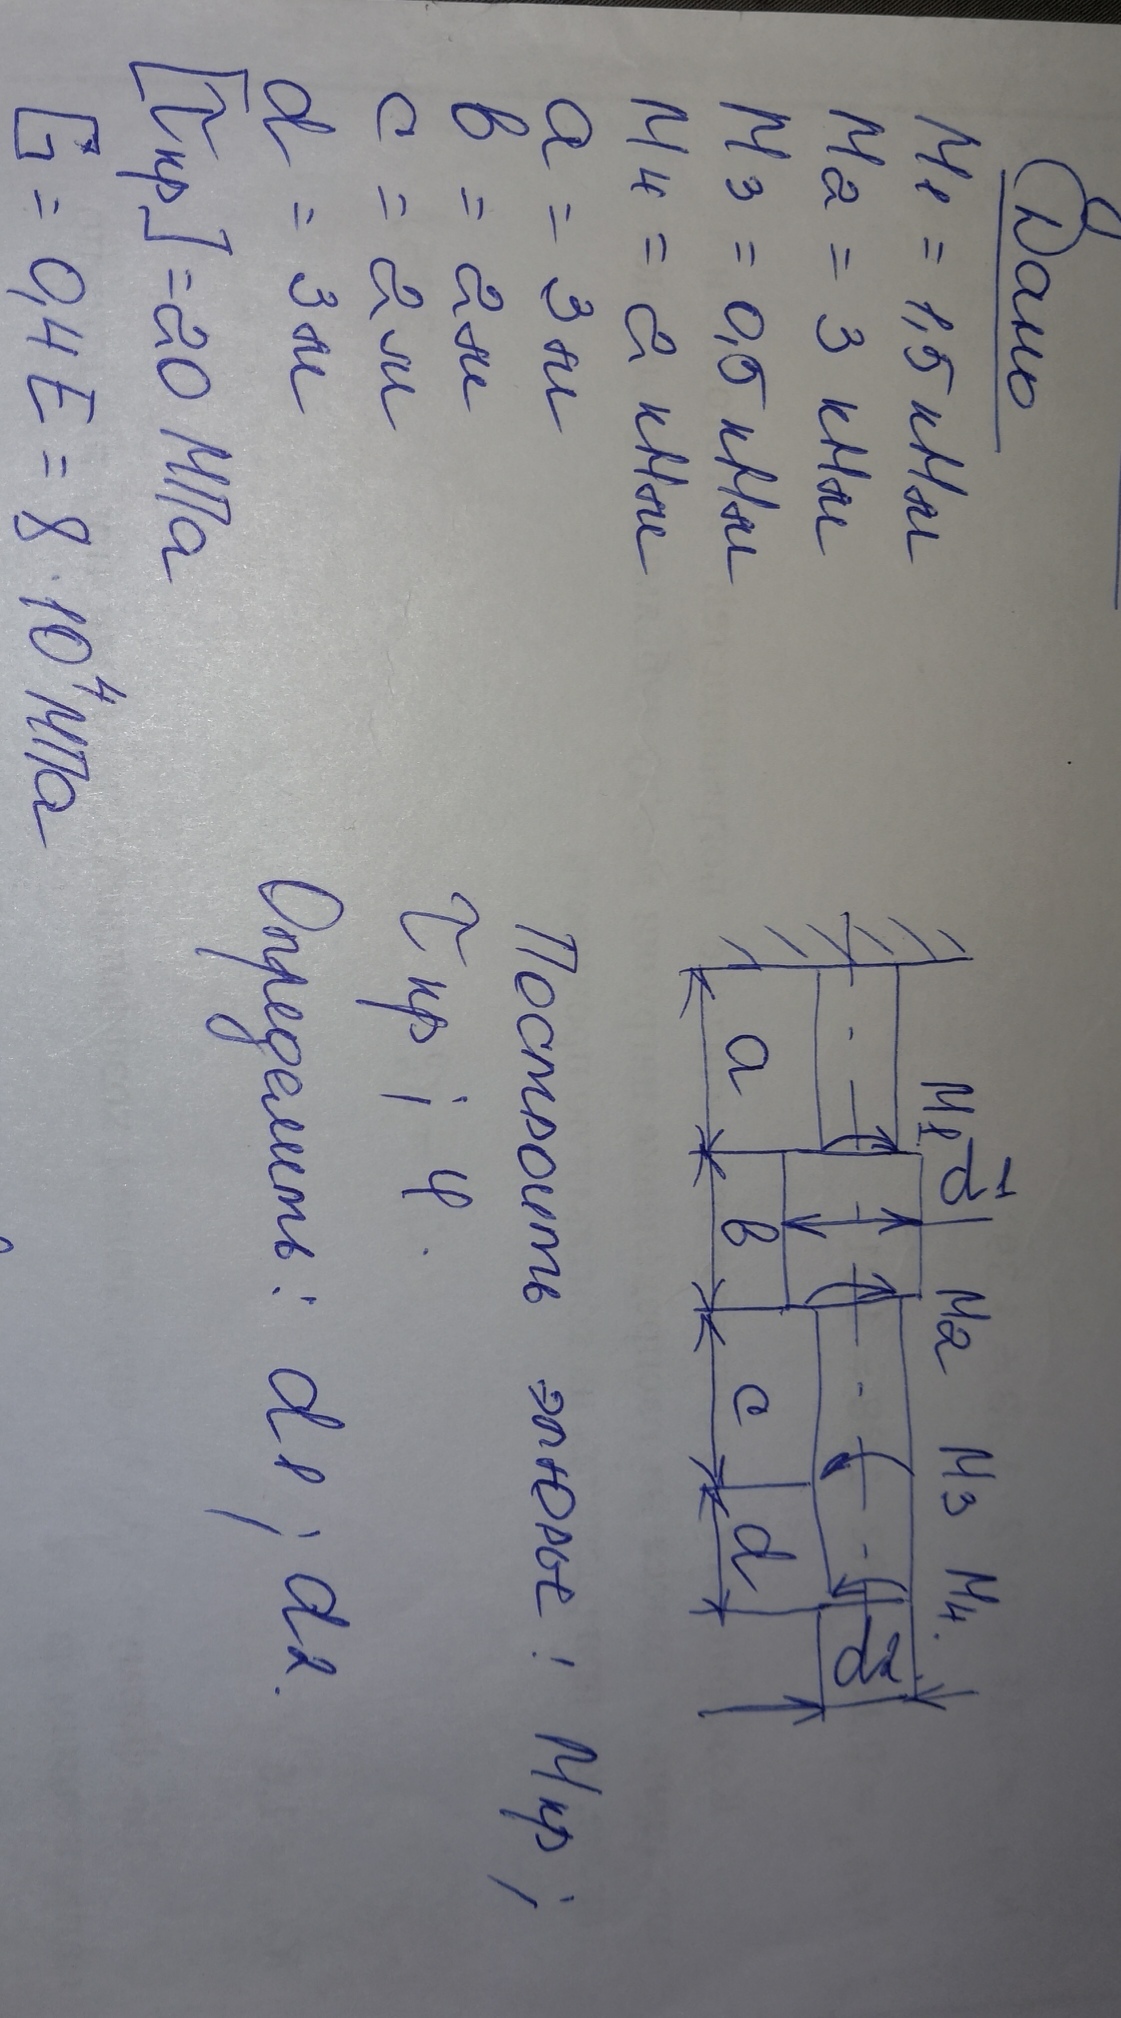 Дано
M1 = 1,5 кНм
M2 = 3 кНм
M3 = 0,5 кНм
M4 = 2 кНм
a = 3 м
в = 2м
c = 2м
d = 3м
[τкр] = 20 МПа
G = 0,4E = 8 · 10⁴ МПа
M1 d1 M2 M3 M4.
a в c d d2
Построить эпюры: Mкр;
τкр; φ.
Определить: d1; d2.